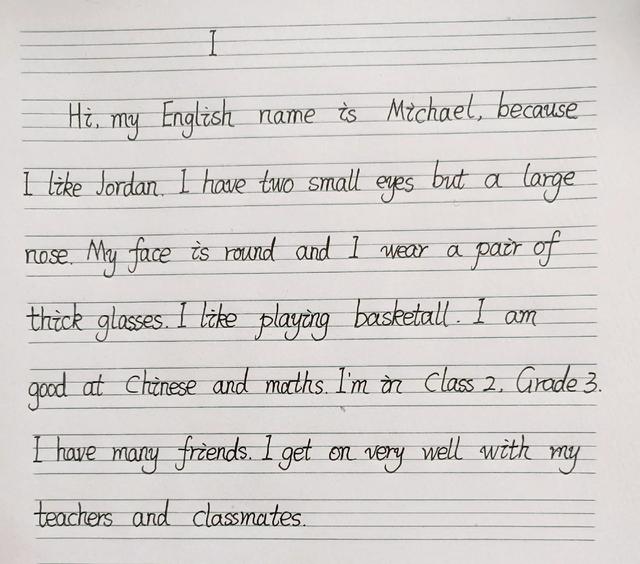 I
Hi, my English name is Michael, because
I like Jordan. I have two small eyes but a large
nose. My face is round and I wear a pair of
thick glasses. I like playing basketall. I am
good at Chinese and maths. I'm in Class 2, Grade 3.
I have many friends. I get on very well with my
teachers and classmates.